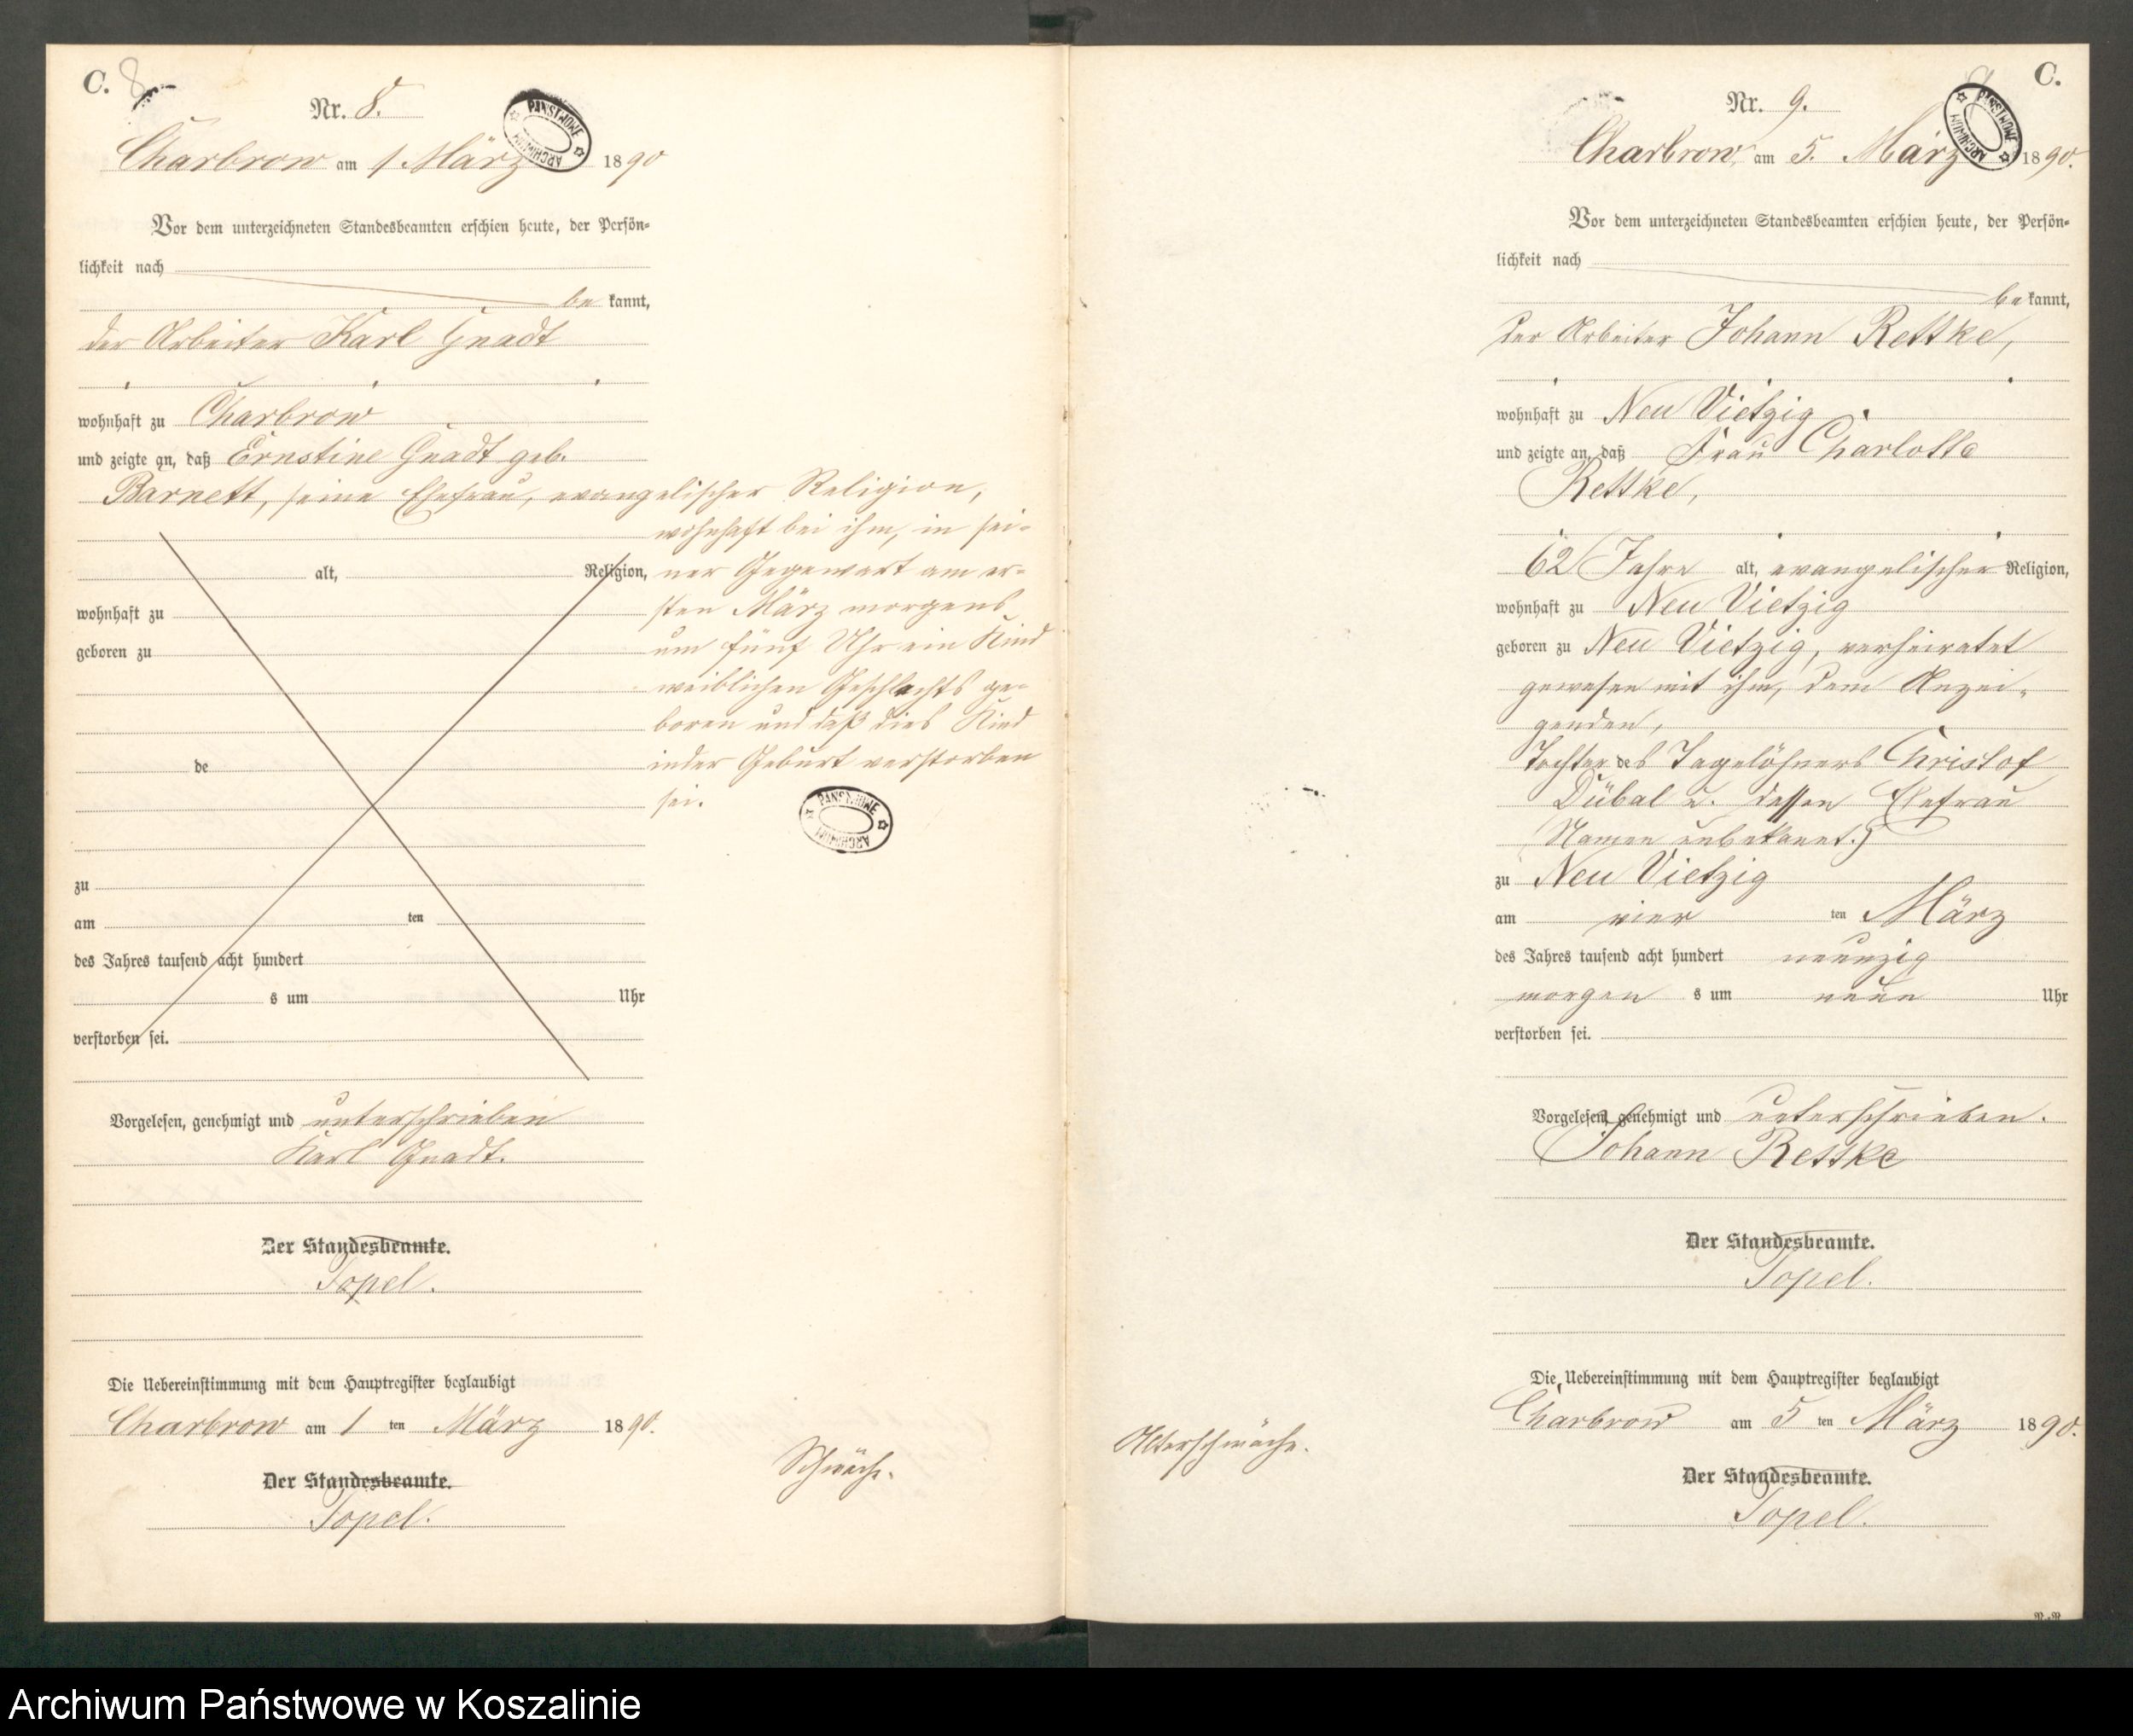 C. 8
Nr. 8.
Charbrow am 1 März 1890
Vor dem unterzeichneten Standesbeamten erschien heute, der Persön-
lichkeit nach
be kannt,
der Arbeiter Karl Gnadt
wohnhaft zu Charbrow
und zeigte an, daß Ernstine Gnadt geb.
Barnett, seine Ehefrau, evangelischer Religion,
wohnhaft bei ihm, in sei-
alt, Religion,
ner Gegenwart am er-
wohnhaft zu
sten März morgens
geboren zu
um fünf Uhr ein Kind
weiblichen Geschlechts ge-
boren und daß dies Kind
de
in der Geburt verstorben
sei.
PAŃSTWOWE ARCHIWUM
zu
am ten
des Jahres tausend acht hundert
s um Uhr
verstorben sei.
Vorgelesen, genehmigt und unterschrieben
Karl Gnadt.
Der Standesbeamte.
Topel.
Die Uebereinstimmung mit dem Hauptregister beglaubigt
Charbrow am 1 ten März 1890.
Schwäche.
Der Standesbeamte.
Topel.
C.
Nr. 9.
PAŃSTWOWE ARCHIWUM
Charbrow, am 5. März 1890.
Vor dem unterzeichneten Standesbeamten erschien heute, der Persön-
lichkeit nach
be kannt,
der Arbeiter Johann Rettke,
wohnhaft zu Neu Vietzig
und zeigte an, daß Frau Charlotte
Rettke,
62 Jahre alt, evangelischer Religion,
wohnhaft zu Neu Vietzig
geboren zu Neu Vietzig, verheiratet
gewesen mit ihm, dem Anzei-
genden,
Tochter des Tagelöhners Christof
Dübal u. dessen Ehefrau
(Namen unbekannt.)
zu Neu Vietzig
am vier ten März
des Jahres tausend acht hundert neunzig
morgen s um neun Uhr
verstorben sei.
Vorgelesen, genehmigt und unterschrieben.
Johann Rettke
Der Standesbeamte.
Topel.
Die Uebereinstimmung mit dem Hauptregister beglaubigt
Charbrow am 5 ten März 1890.
Alterschwäche.
Der Standesbeamte.
Topel.
Archiwum Państwowe w Koszalinie